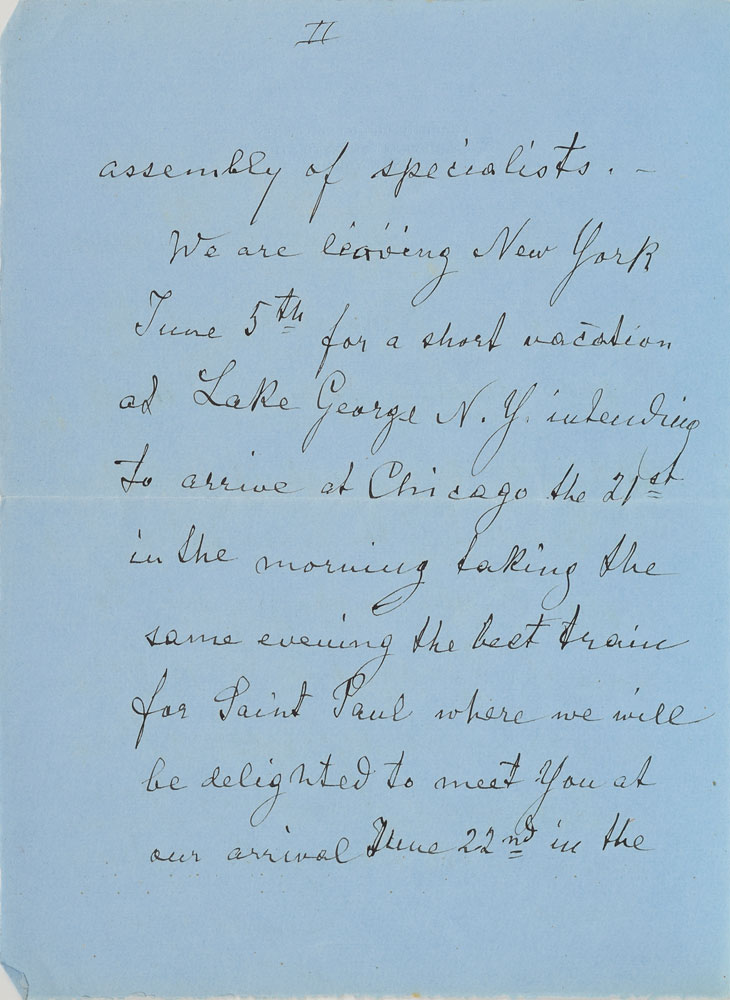 II
assembly of specialists. —
We are leaving New York
June 5th for a short vacation
at Lake George N. Y. intending
to arrive at Chicago the 21st
in the morning taking the
same evening the best train
for Saint Paul where we will
be delighted to meet You at
our arrival June 22nd in the